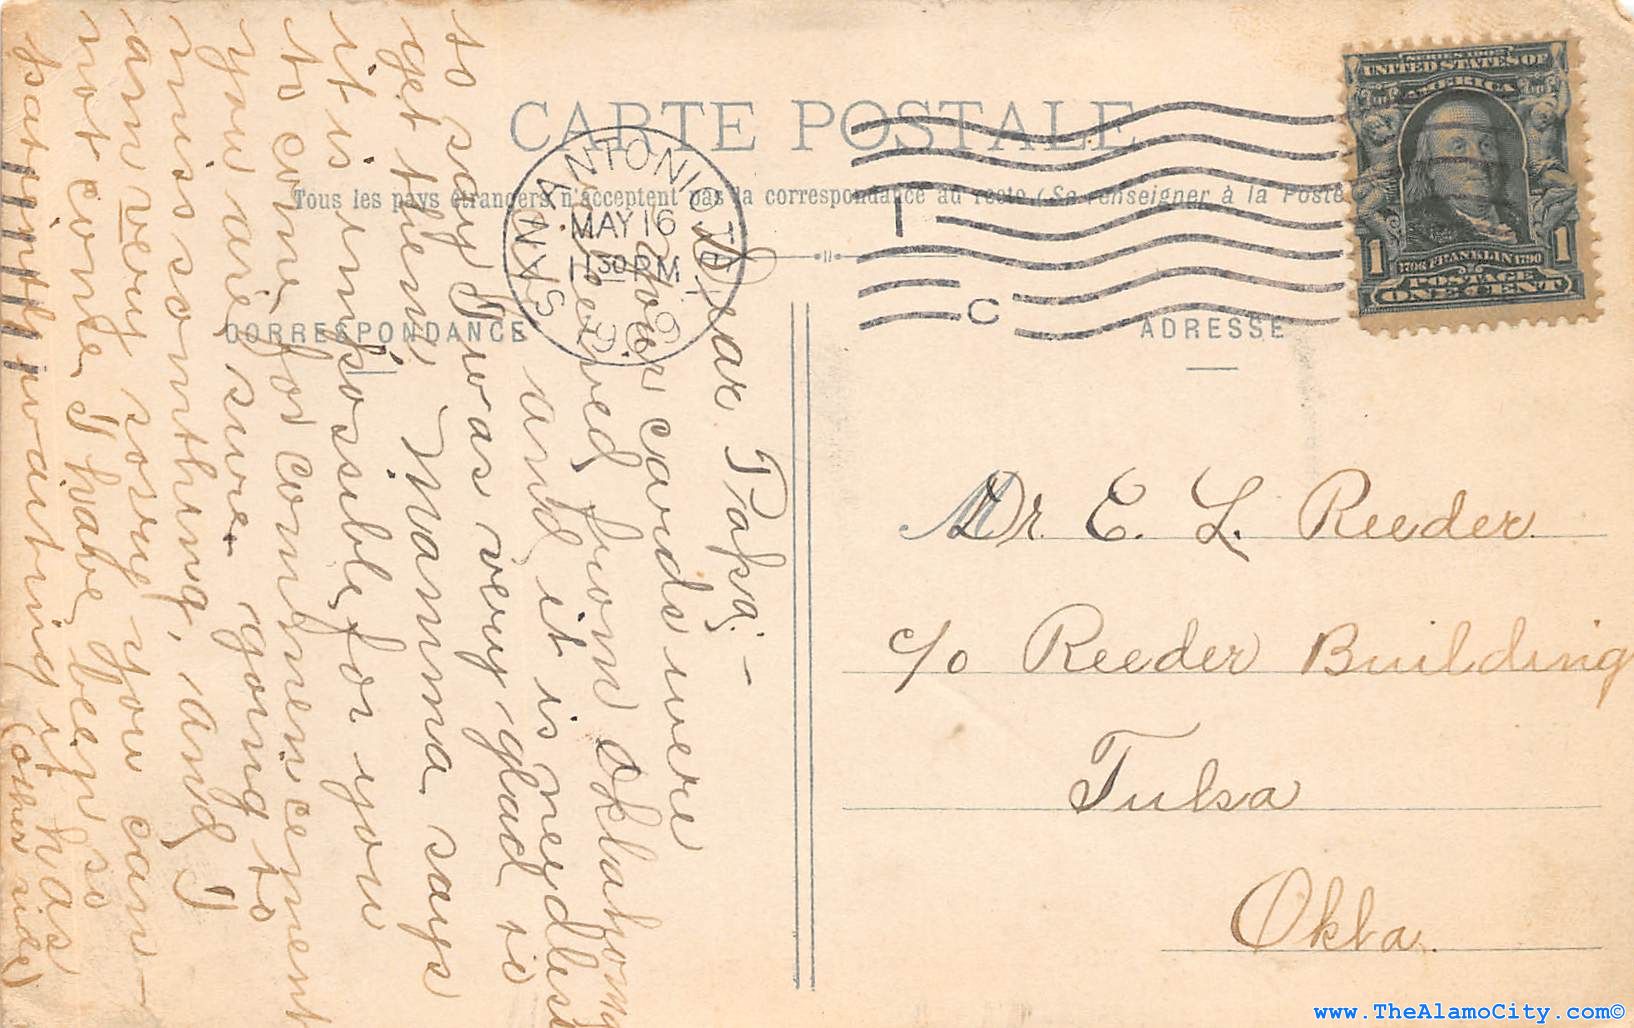 CARTE POSTALE
Tous les pays étrangers n'acceptent pas la correspondance au recto (Se renseigner à la Poste
CORRESPONDANCE
ADRESSE
SAN ANTONIO, TEX.
MAY 16
11 30 PM
C
SERIES 1902
UNITED STATES OF
AMERICA
1706 FRANKLIN 1790
POSTAGE
1 ONE CENT 1
Dear Papa: —
Your cards were
received from Oklahoma
and it is needless
to say I was very glad to
get them. Mamma says
it is impossible for you
to come for commencement
you are sure going to
miss something, and I
am very sorry you can-
not come. I have been so
patiently waiting it has
(other side)
Dr. E. L. Reeder.
c/o Reeder Building
Tulsa
Okla.
www.TheAlamoCity.com©